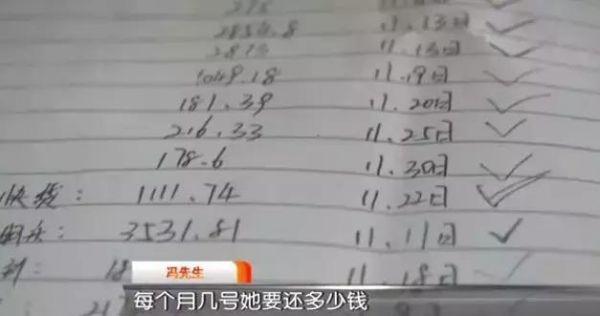 2854.8 11.13日
11.13日
1049.18 11.19日
181.39 11.20日
216.33 11.25日
178.6 11.30日
快线: 1111.74 11.22日
3531.81 11.11日
18 11.18日
冯先生
每个月几号她要还多少钱